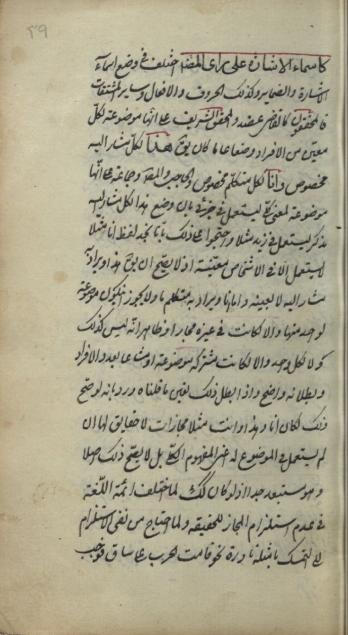 ٢٩
كاسماء الاشارة على راى المض اختلف فى وضع اسماء
الاشارة والضماير وكذلك الحروف والافعال وساير المشتقات
فالمحققون كالقاضى عضد والمحقق الشريف على انها موضوعة لكل
معين من الافراد وضعا عاما كان يوضع هذا لكل مشار اليه
مخصوص وانا لكل متكلم مخصوص والحاجبى والمص وجماعة على انها
موضوعة لمعنى كلى ليستعمل فى جزئى بان وضع هذا لكل مشار اليه
مذكر ليستعمل فى زيد مثلا واحتجوا على ذلك بانا نجد لفظ انا مثلا
لا يستعمل الا فى الاشخاص معينة اذ لا يصح ان يوق هذا ويراد به
مشار اليه لا بعينه وانا ويراد به متكلم ما ولا يجوز ان يكون موضوعة
لواحد منها والا لكانت فى غيره مجازا وظاهر انه ليس كذلك
كو لا لكل واحد والا لكانت مشتركة موضوعة اوضاعا بعدد الافراد
وبطلانه واضح واذا بطل ذلك تعين ما قلناه ورد بانه لو صح
ذلك لكان انا وهذا وانت مثلا مجازات لا حقايق لها ان
لم يستعمل فى الموضوع له من المفهوم الكلى بل لا يصح ذلك اصلا
وهو مستبعد جدا اذ لو كان كك لما اختلف ائمة اللغة
فى عدم استلزام المجاز للحقيقة ولما احتاج من نفى الاستلزام
الى التمسك بامثلة نادرة نحو قامت الحرب على ساق